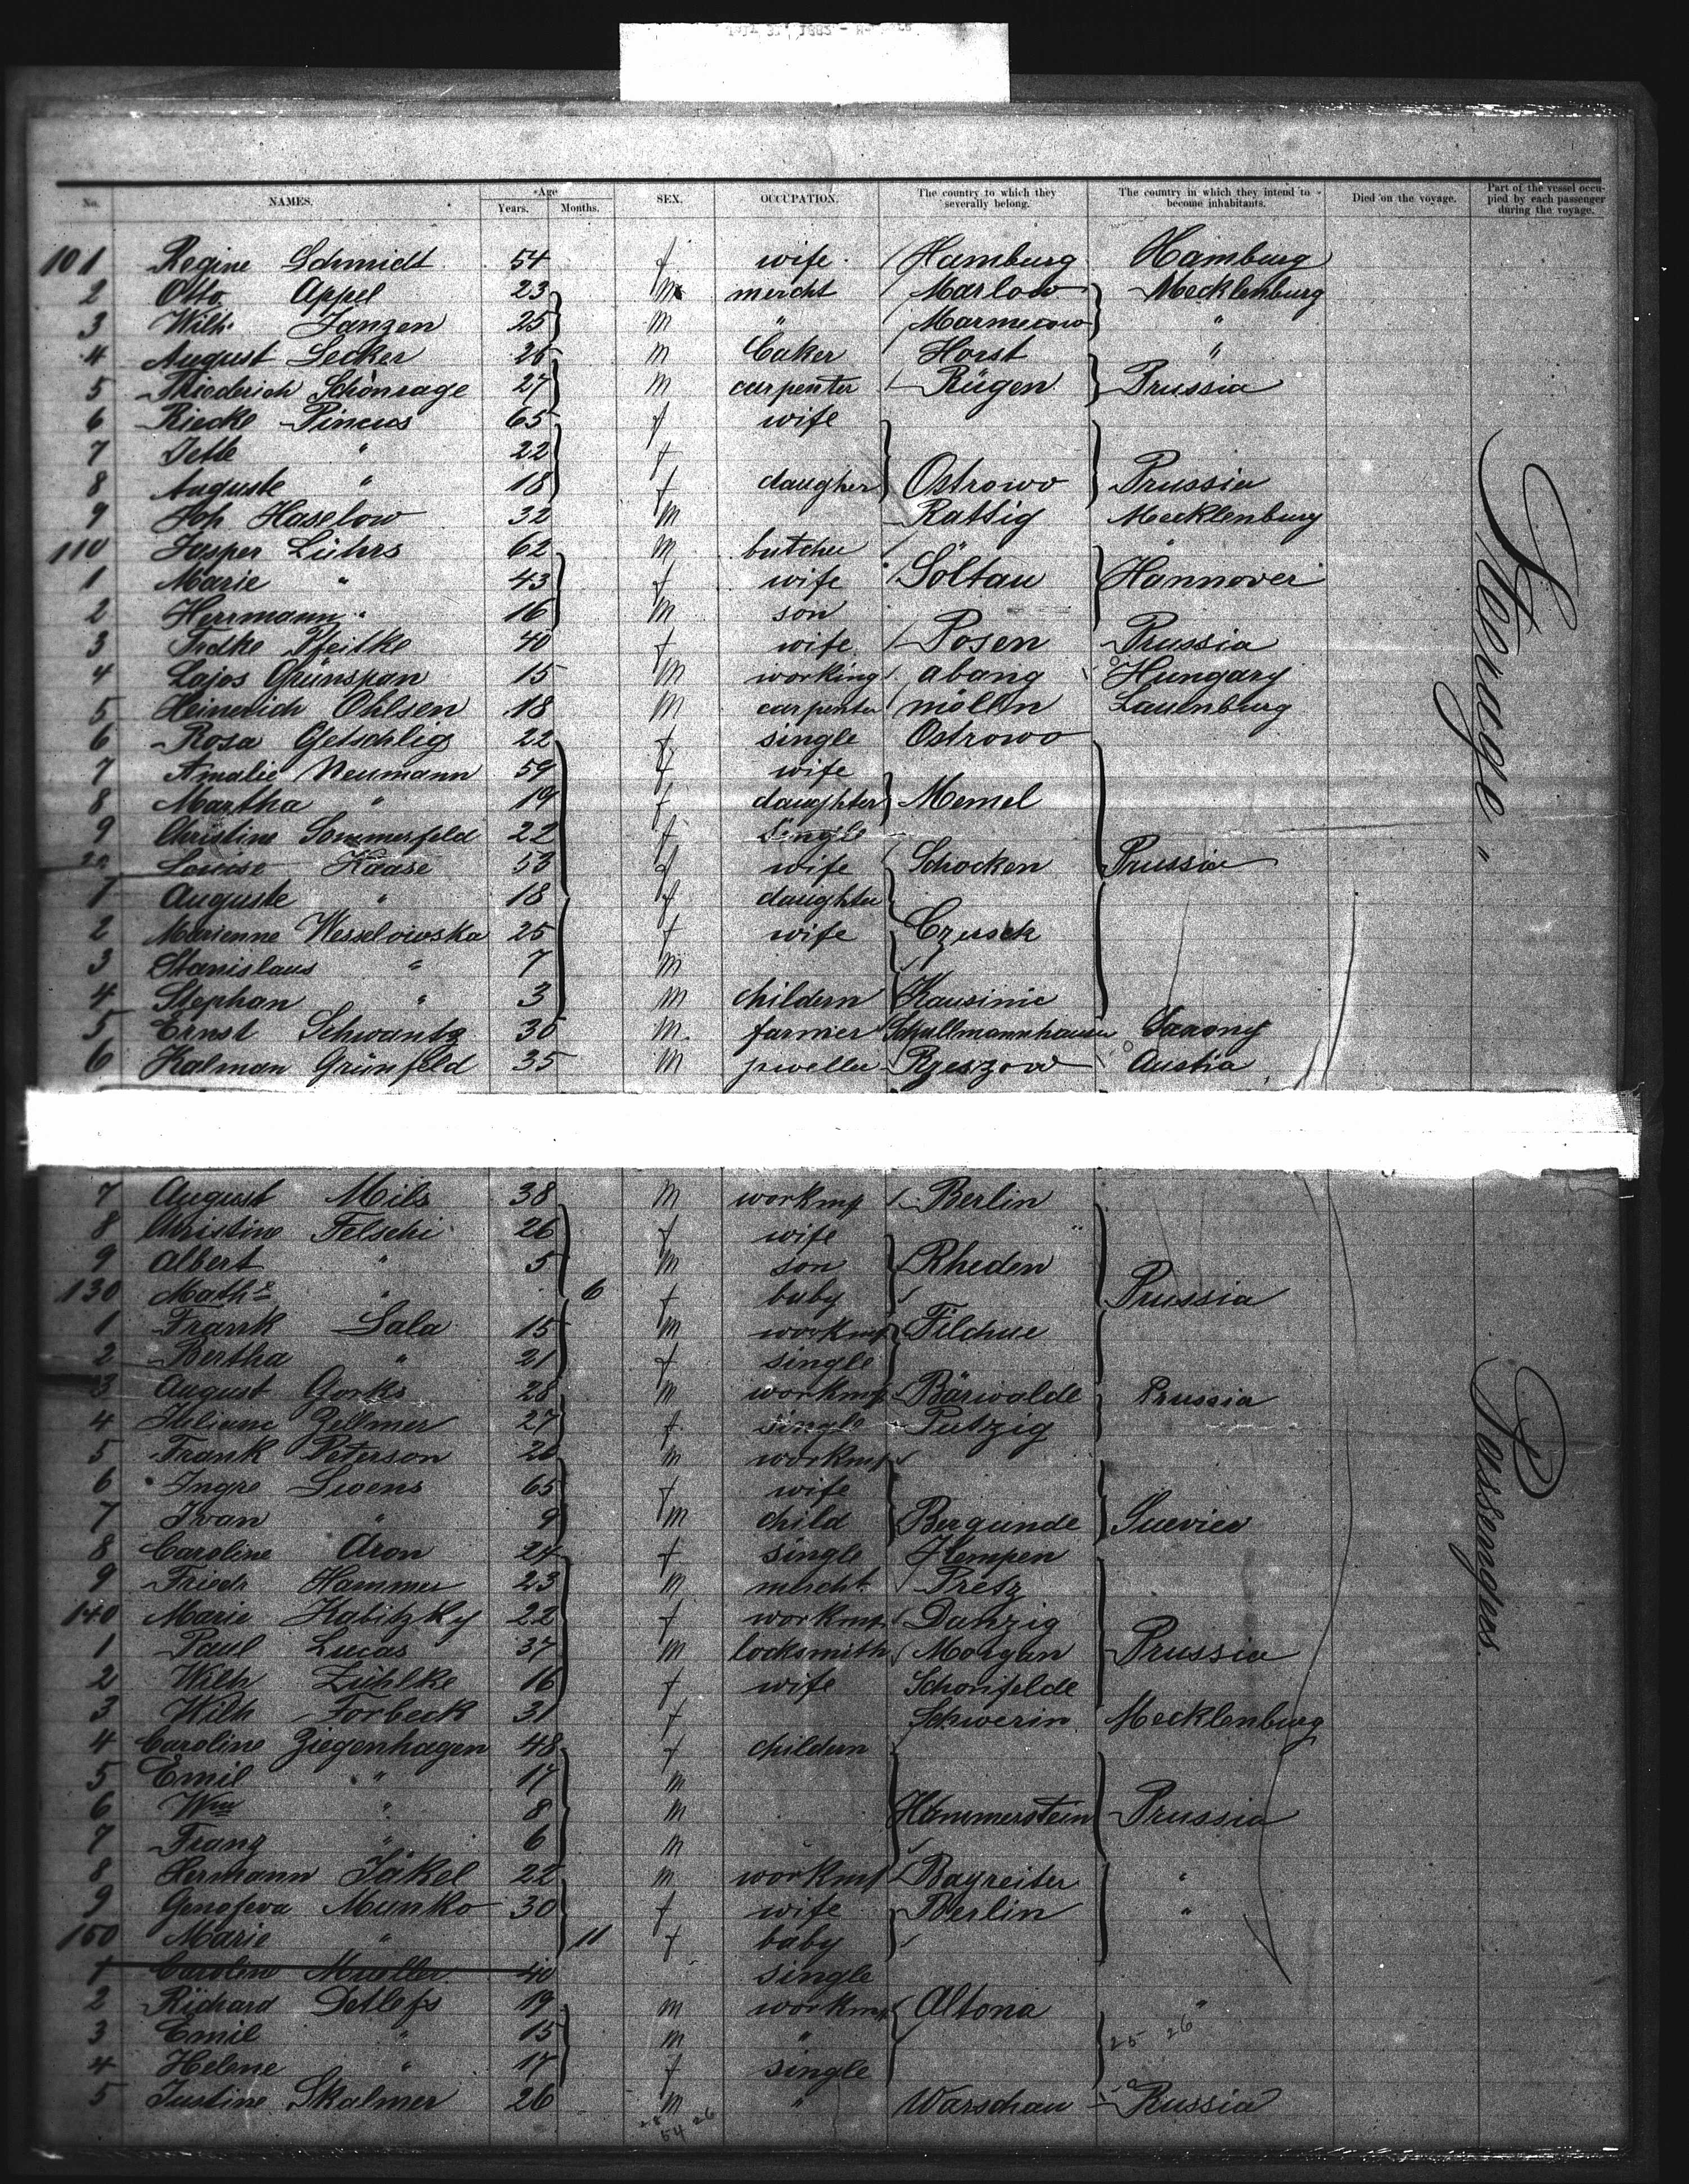 No. NAMES. Age Years. Months. SEX. OCCUPATION. The country to which they severally belong. The country in which they intend to become inhabitants. Died on the voyage. Part of the vessel occupied by each passenger during the voyage.
101 Regine Schmidt 54 f wife Hamburg Hamburg
2 Otto Appel 23 m mercht Marlow Mecklenburg
3 Wilh. Janzen 25 m " Marmecow "
4 August Lecker 26 m Caker Horst "
5 Friederich Schönrage 27 m carpenter Rügen Prussia
6 Riecke Pincus 65 f wife
7 Jette " 22 f
8 Auguste " 18 f daugher Ostrowo Prussia
9 Joh Haselow 32 m Rattig Mecklenburg
110 Jasper Lührs 62 m butcher
1 Marie " 43 f wife Soltau Hannover
2 Herrmann " 16 m son
3 Fredke Pfeitke 40 f wife Posen Prussia
4 Lajos Grünspan 15 m working abang Hungary
5 Heinerich Ohlsen 18 m carpenter mölln Lauenburg
6 Rosa Gfetschlig 22 f single Ostrowo
7 Amalie Neumann 59 f wife
8 Martha " 19 f daughter Memel
9 Christine Sommerfeld 22 f single
20 Louise Haase 53 f wife Schocken Prussia
1 Auguste " 18 f daughter
2 Marienne Wesselowska 25 f wife Czersck
3 Stanislaus " 7 m
4 Stephan " 3 m childern Kausinic
5 Ernst Schwantz 30 m farmer Schullmannhausen Saxony
6 Kalman Grünfeld 35 m jweller Rzeszow Austia
7 August Mils 38 m workmg Berlin "
8 Christine Felschi 26 f wife
9 Albert " 5 m son Rheden
130 Mathe " 6 f baby Prussia
1 Frank Sala 15 m workmg Filchue
2 Bertha " 21 f single
3 August Gorks 28 m workmg Bärwalde Prussia
4 Juliane Zellmer 27 f single Putzig
5 Frank Peterson 26 m workmg
6 Ingre Swens 65 f wife
7 Ivan " 9 m child Bergunde Suevien
8 Caroline Aron 24 f single Kempen
9 Friedr Hammer 23 m mercht Pretz
140 Marie Kabitzky 22 f workmg Danzig
1 Paul Lucas 37 m locksmith Morgan Prussia
2 Wilh Zühlke 16 f wife Schonfelde
3 Wilh Forbeck 31 f Schwerin Mecklenburg
4 Caroline Ziegenhagen 48 f childern
5 Emil " 17 m
6 Wm " 8 m Hammerstein Prussia
7 Franz " 6 m
8 Hermann Jäkel 22 m workmg Bayreiter "
9 Genofeva Munko 30 f wife Berlin "
150 Marie " 11 f baby
1 Carolin Mueller 40 single
2 Richard Detlefs 19 m workmg Altona "
3 Emil " 15 m " 25 26
4 Helene " 17 f single
5 Justine Skalmer 26 m " Warschau Russia
54 26
Steerage "
Passengers